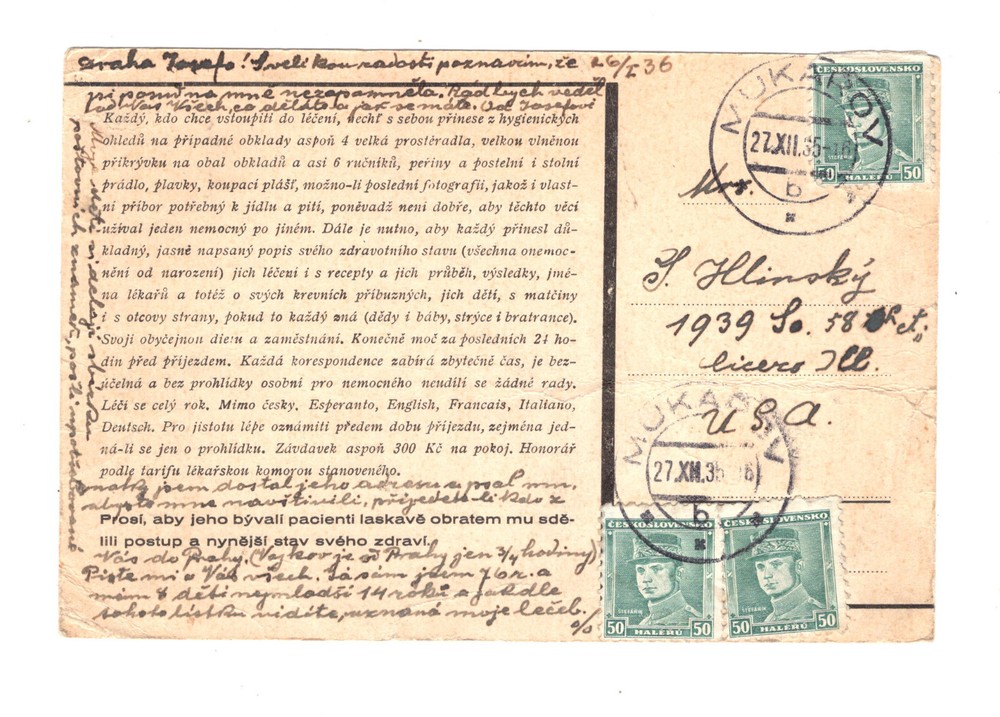 Draha Josefo! S velikou radostí poznávám, že 26/I 36
na mne nezapomněla. Rád bych věděl
od Vás všech, co děláte a jak se máte. Od Josefovi
Každý, kdo chce vstoupiti do léčení, nechť s sebou přinese z hygienických
ohledů na případné obklady aspoň 4 velká prostěradla, velkou vlněnou
přikrývku na obal obkladů a asi 6 ručníků, peřiny a postelní i stolní
prádlo, plavky, koupací plášť, možno-li poslední fotografii, jakož i vlast-
ní příbor potřebný k jídlu a pití, poněvadž není dobře, aby těchto věcí
užíval jeden nemocný po jiném. Dále je nutno, aby každý přinesl dů-
kladný, jasně napsaný popis svého zdravotního stavu (všechna onemoc-
nění od narození) jich léčení i s recepty a jich průběh, výsledky, jmé-
na lékařů a totéž o svých krevních příbuzných, jich dětí, s matčiny
i s otcovy strany, pokud to každý zná (dědi i báby, strýce i bratrance).
Svoji obyčejnou dietu a zaměstnání. Konečně moč za posledních 24 ho-
din před příjezdem. Každá korespondence zabírá zbytečně čas, je bez-
účelná a bez prohlídky osobní pro nemocného neudílí se žádné rady.
Léčí se celý rok. Mimo česky. Esperanto, English, Francais, Italiano,
Deutsch. Pro jistotu lépe oznámiti předem dobu příjezdu, zejména jed-
ná-li se jen o prohlídku. Závdavek aspoň 300 Kč na pokoj. Honorář
podle tarifu lékařskou komorou stanoveného.
jsem dostal jeho adresu a psal mu,
abysto mne navštívili, přijedete-li kdo z
Prosí, aby jeho bývalí pacienti laskavě obratem mu sdě-
lili postup a nynější stav svého zdraví.
Vás do Prahy. (Vojkov je od Prahy jen 3/4 hodiny)
Pište mi o Vás všech. Já sám jsem 76 r. a
mám 8 dětí nejmladší 14 roků a jak dle
tohoto lístku vidíte, uznaná moje léčeb.
%
Moje děti si dělají sbírku
poštovních známek, pošli upotřebované
ČESKOSLOVENSKO
ŠTEFÁNIK
50 HALÉŘŮ 50
MUKAŘOV
27.XII.35-16
b
Mrs.
S. Hlinský
1939 So. 58
Cicero Ill.
U S. A.
MUKAŘOV
27.XII.35-16
b
ČESKOSLOVENSKO
ŠTEFÁNIK
50 HALÉŘŮ 50
ČESKOSLOVENSKO
ŠTEFÁNIK
50 HALÉŘŮ 50